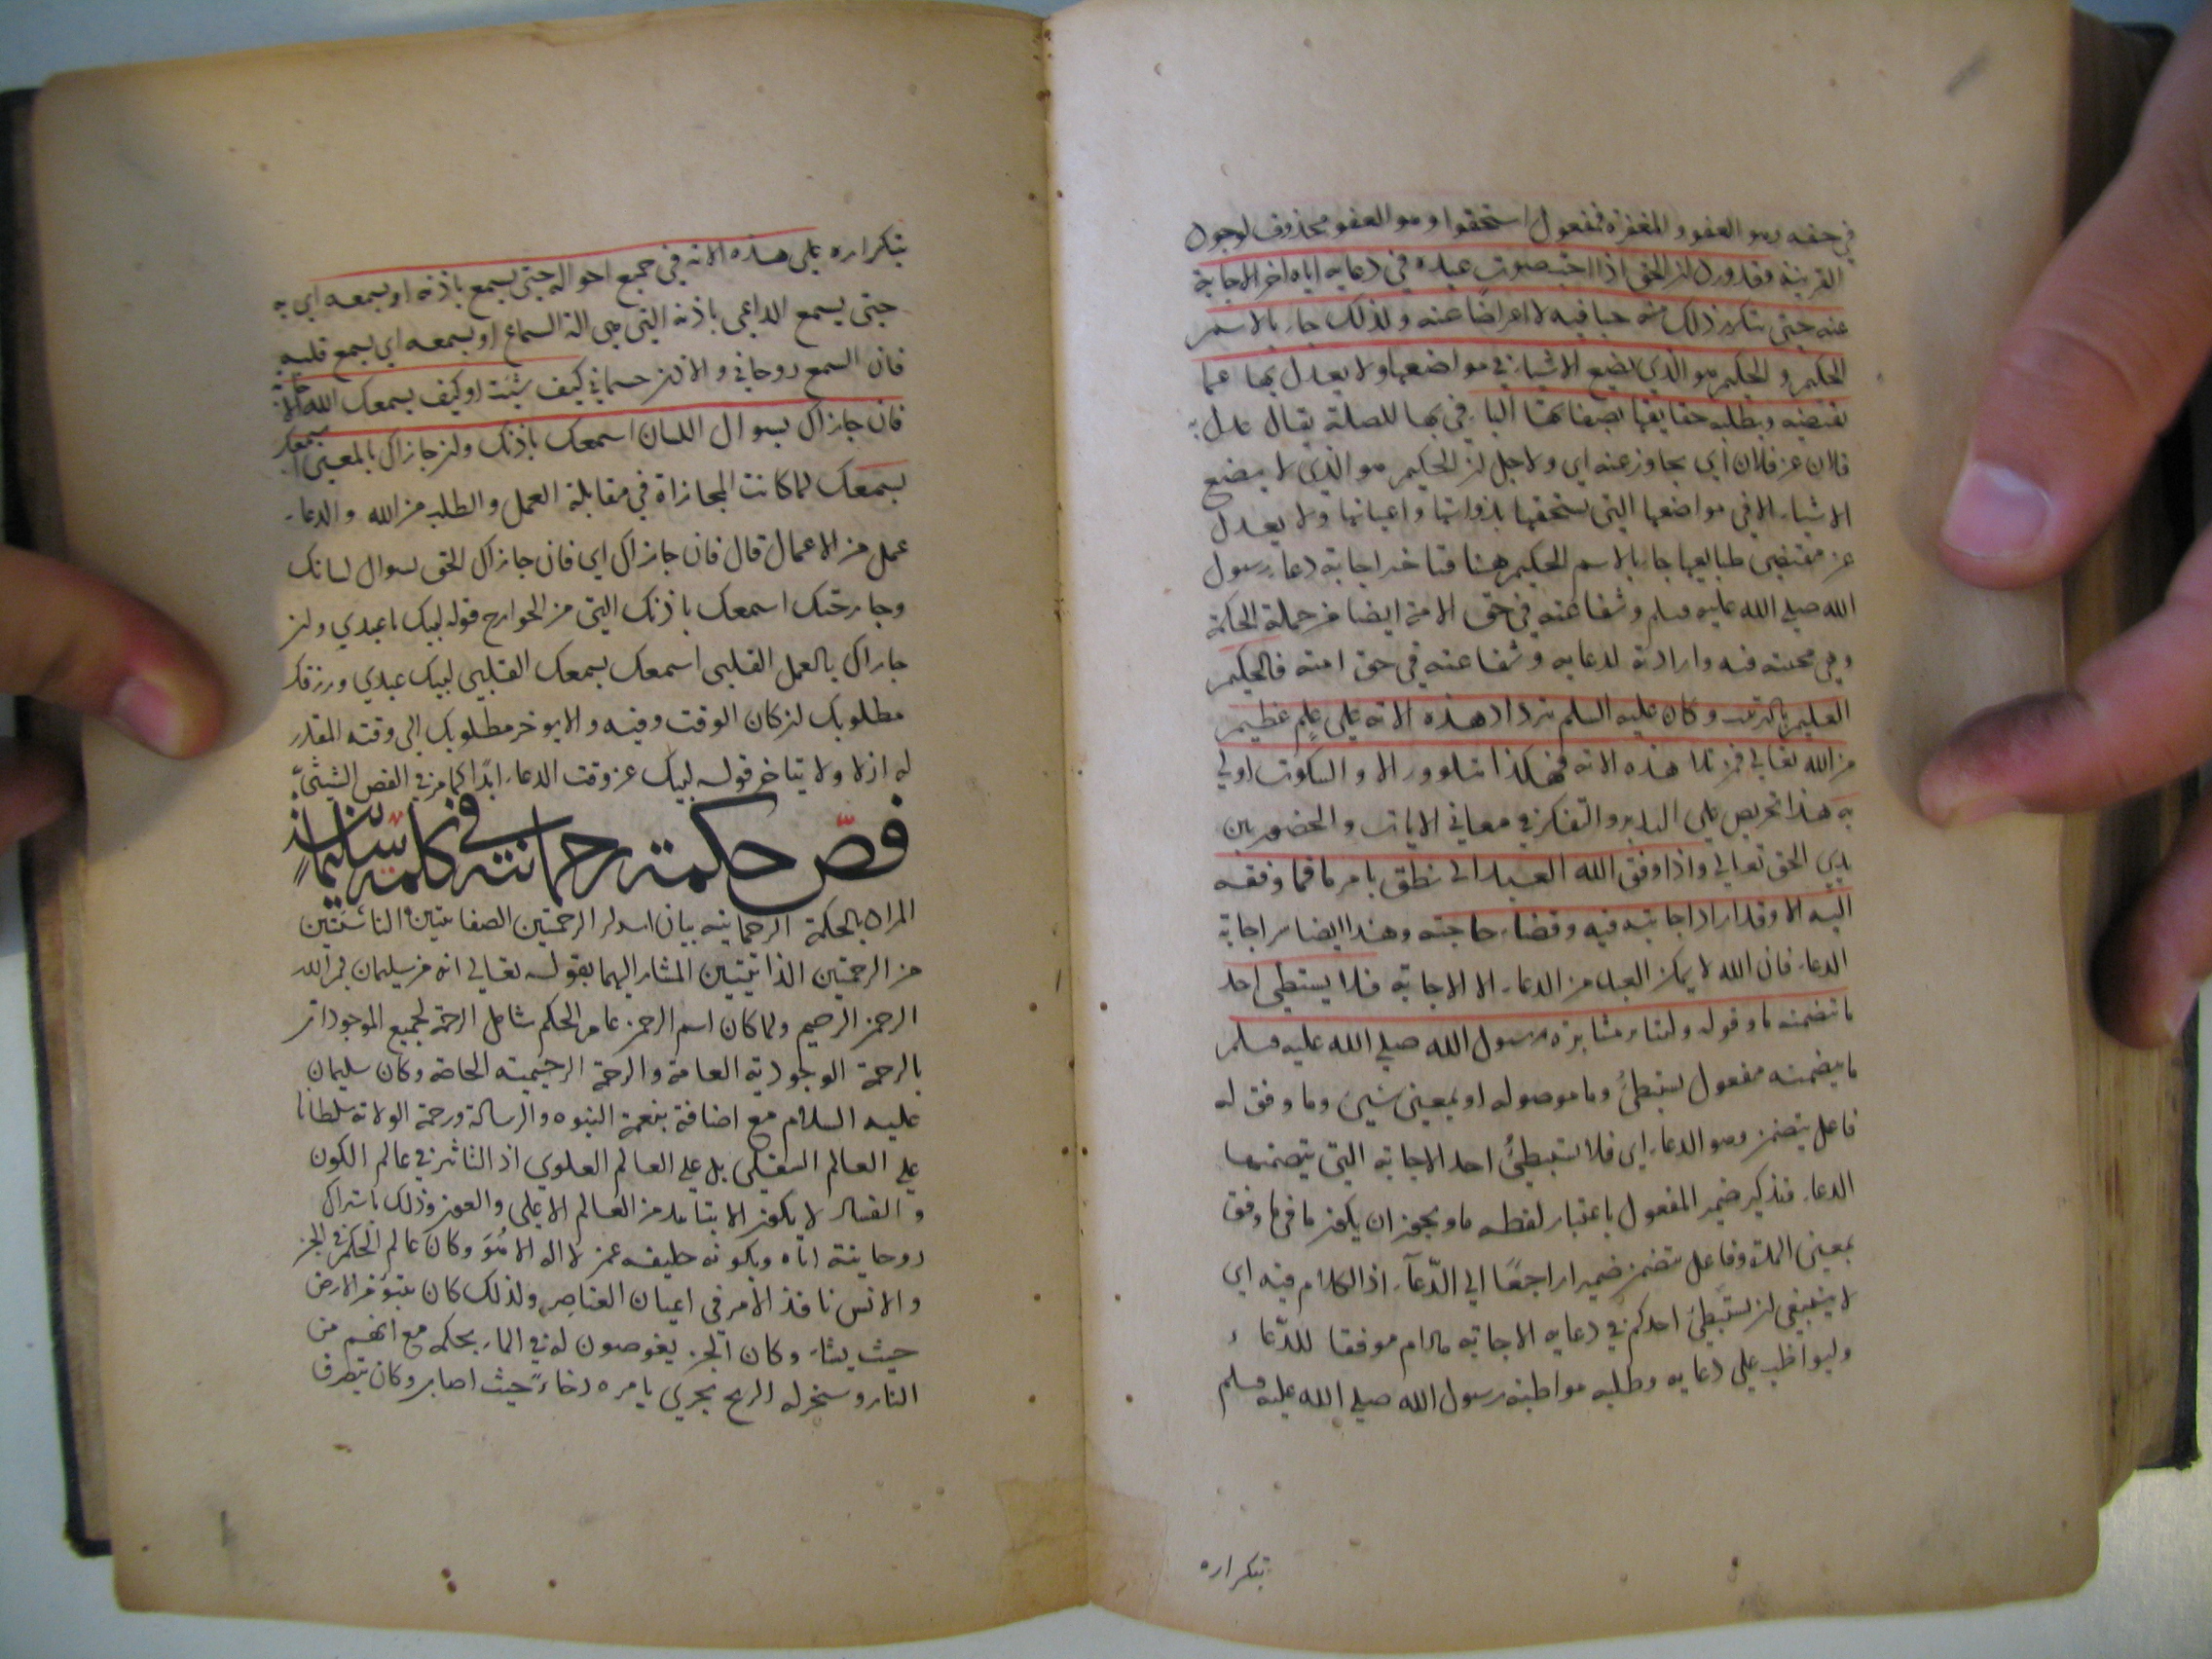 في حقه وهو العفو والمغفرة فمفعول استحقوا وهو العفو محذوف لوجود
القرينة وقد ورد ان الحق اذا احب صوت عبده في دعايه اياه اخر الاجابة
عنه حتى يتكرر ذلك منه حبا فيه لا اعراضا عنه ولذلك جاء بالاسم
الحكيم والحكيم هو الذي يضع الاشياء في مواضعها ولا يعدل بها عما
تقتضيه وتطلبه حقايقها بصفاتها الباء في بها للصلة يقال عدل به
فلان عن فلان اي تجاوز عنه اي ولاجل ان الحكيم هو الذي لا يضع
الاشياء الا في مواضعها التي تستحقها بذواتها واعيانها ولا يعدل
عن مقتضى طبايعها جاء بالاسم الحكيم هنا فتاخير اجابة دعاء رسول
الله صلى الله عليه وسلم وشفاعته في حق الامة ايضا من جملة الحكمة
وهي محبته فيه وارادته لدعايه وشفاعته في حق امته فالحكيم
العليم بالترتيب وكان عليه السلم بترداد هذه الاية على علم عظيم
من الله تعالى فمن تلا هذه الاية فهكذا يتلو والا والسكوت اولى
به هذا تحريض على التدبر والتفكر في معاني الايات والحضور بين
يدي الحق تعالى واذا وفق الله العبد الى نطق بامر ما فما وفقه
اليه الا وقد اراد اجابته فيه وقضاء حاجته وهذا ايضا سر اجابة
الدعاء فان الله لا يمكن العبد من الدعاء الا للاجابة فلا يستبطى احد
ما تتضمنه ما وفق له وليثابر مثابرة رسول الله صلى الله عليه وسلم
ما يتضمنه مفعول يستبطئ وما موصوله او بمعنى شيئ وما وفق له
فاعل يتضمن وهو الدعاء اي فلا يستبطئ احد الاجابة التي يتضمنها
الدعاء فتذكير ضمير المفعول باعتبار لفظه ما ويجوز ان يكون ما في ما وفق
بمعنى المدة وفاعل يتضمن ضميرا راجعا الى الدعاء اذ الكلام فيه اي
لا ينبغي ان يستبطئ احدكم في دعايه الاجابة ما دام موفقا للدعاء
وليواظب على دعايه وطلبه مواظبة رسول الله صلى الله عليه وسلم
بتكراره
بتكراره على هذه الاية في جميع احواله حتى يسمع باذنه او بسمعه اي به
حتى يسمع الداعي باذنه التي هي الة السماع او بسمعه اي بسمع قلبه
فان السمع روحاني والاذن جسماني كيف شئت او كيف يسمعك الله الاجابة
فان جازاك بسوال اللسان اسمعك باذنك وان جازاك بالمعنى اسمعك
بسمعك لما كانت المجازاة في مقابلة العمل والطلب من الله والدعاء
عمل من الاعمال قال فان جازاك اي فان جازاك الحق بسوال لسانك
وجارحتك اسمعك باذنك التي من الجوارح قوله لبيك يا عبدي وان
جازاك بالعمل القلبي اسمعك بسمعك القلبي لبيك عبدي ورزقك
مطلوبك ان كان الوقت وفيه والا يوخر مطلوبك الى وقته المقدر
له ازلا ولا يتاخر قوله لبيك عن وقت الدعاء ابدا كما مر في الفص الشيثي
فص حكمة رحمانية في كلمة سليمانية
المراد بالحكمة الرحمانية بيان اسرار الرحمتين الصفاتيتين الناشئتين
من الرحمتين الذاتيتين المشار اليهما بقوله تعالى انه من سليمان وانه بسم الله
الرحمن الرحيم ولما كان اسم الرحمن عام الحكم شامل الرحمة لجميع الموجودات
بالرحمة الوجودية العامة والرحمة الرحيمية الخاصة وكان سليمان
عليه السلام مع اضافة بنعمة النبوه والرسالة ورحمة الولاية سلطانا
على العالم السفلي بل على العالم العلوي اذ التاثير في عالم الكون
والفساد لا يكون الا بتاييد من العالم الاعلى والعون وذلك باستراك
روحانيته اياه وبكونه خليفه عمن لا اله الا هو وكان عالم الحكم في الجن
والانس نافذ الامر في اعيان العناصر ولذلك كان يتبوء من الارض
حيث يشاء وكان الجن يغوصون له في الماء بحكمه مع انهم من
النار وسخر له الريح تجري بامره رخاء حيث اصاب وكان يتصرف